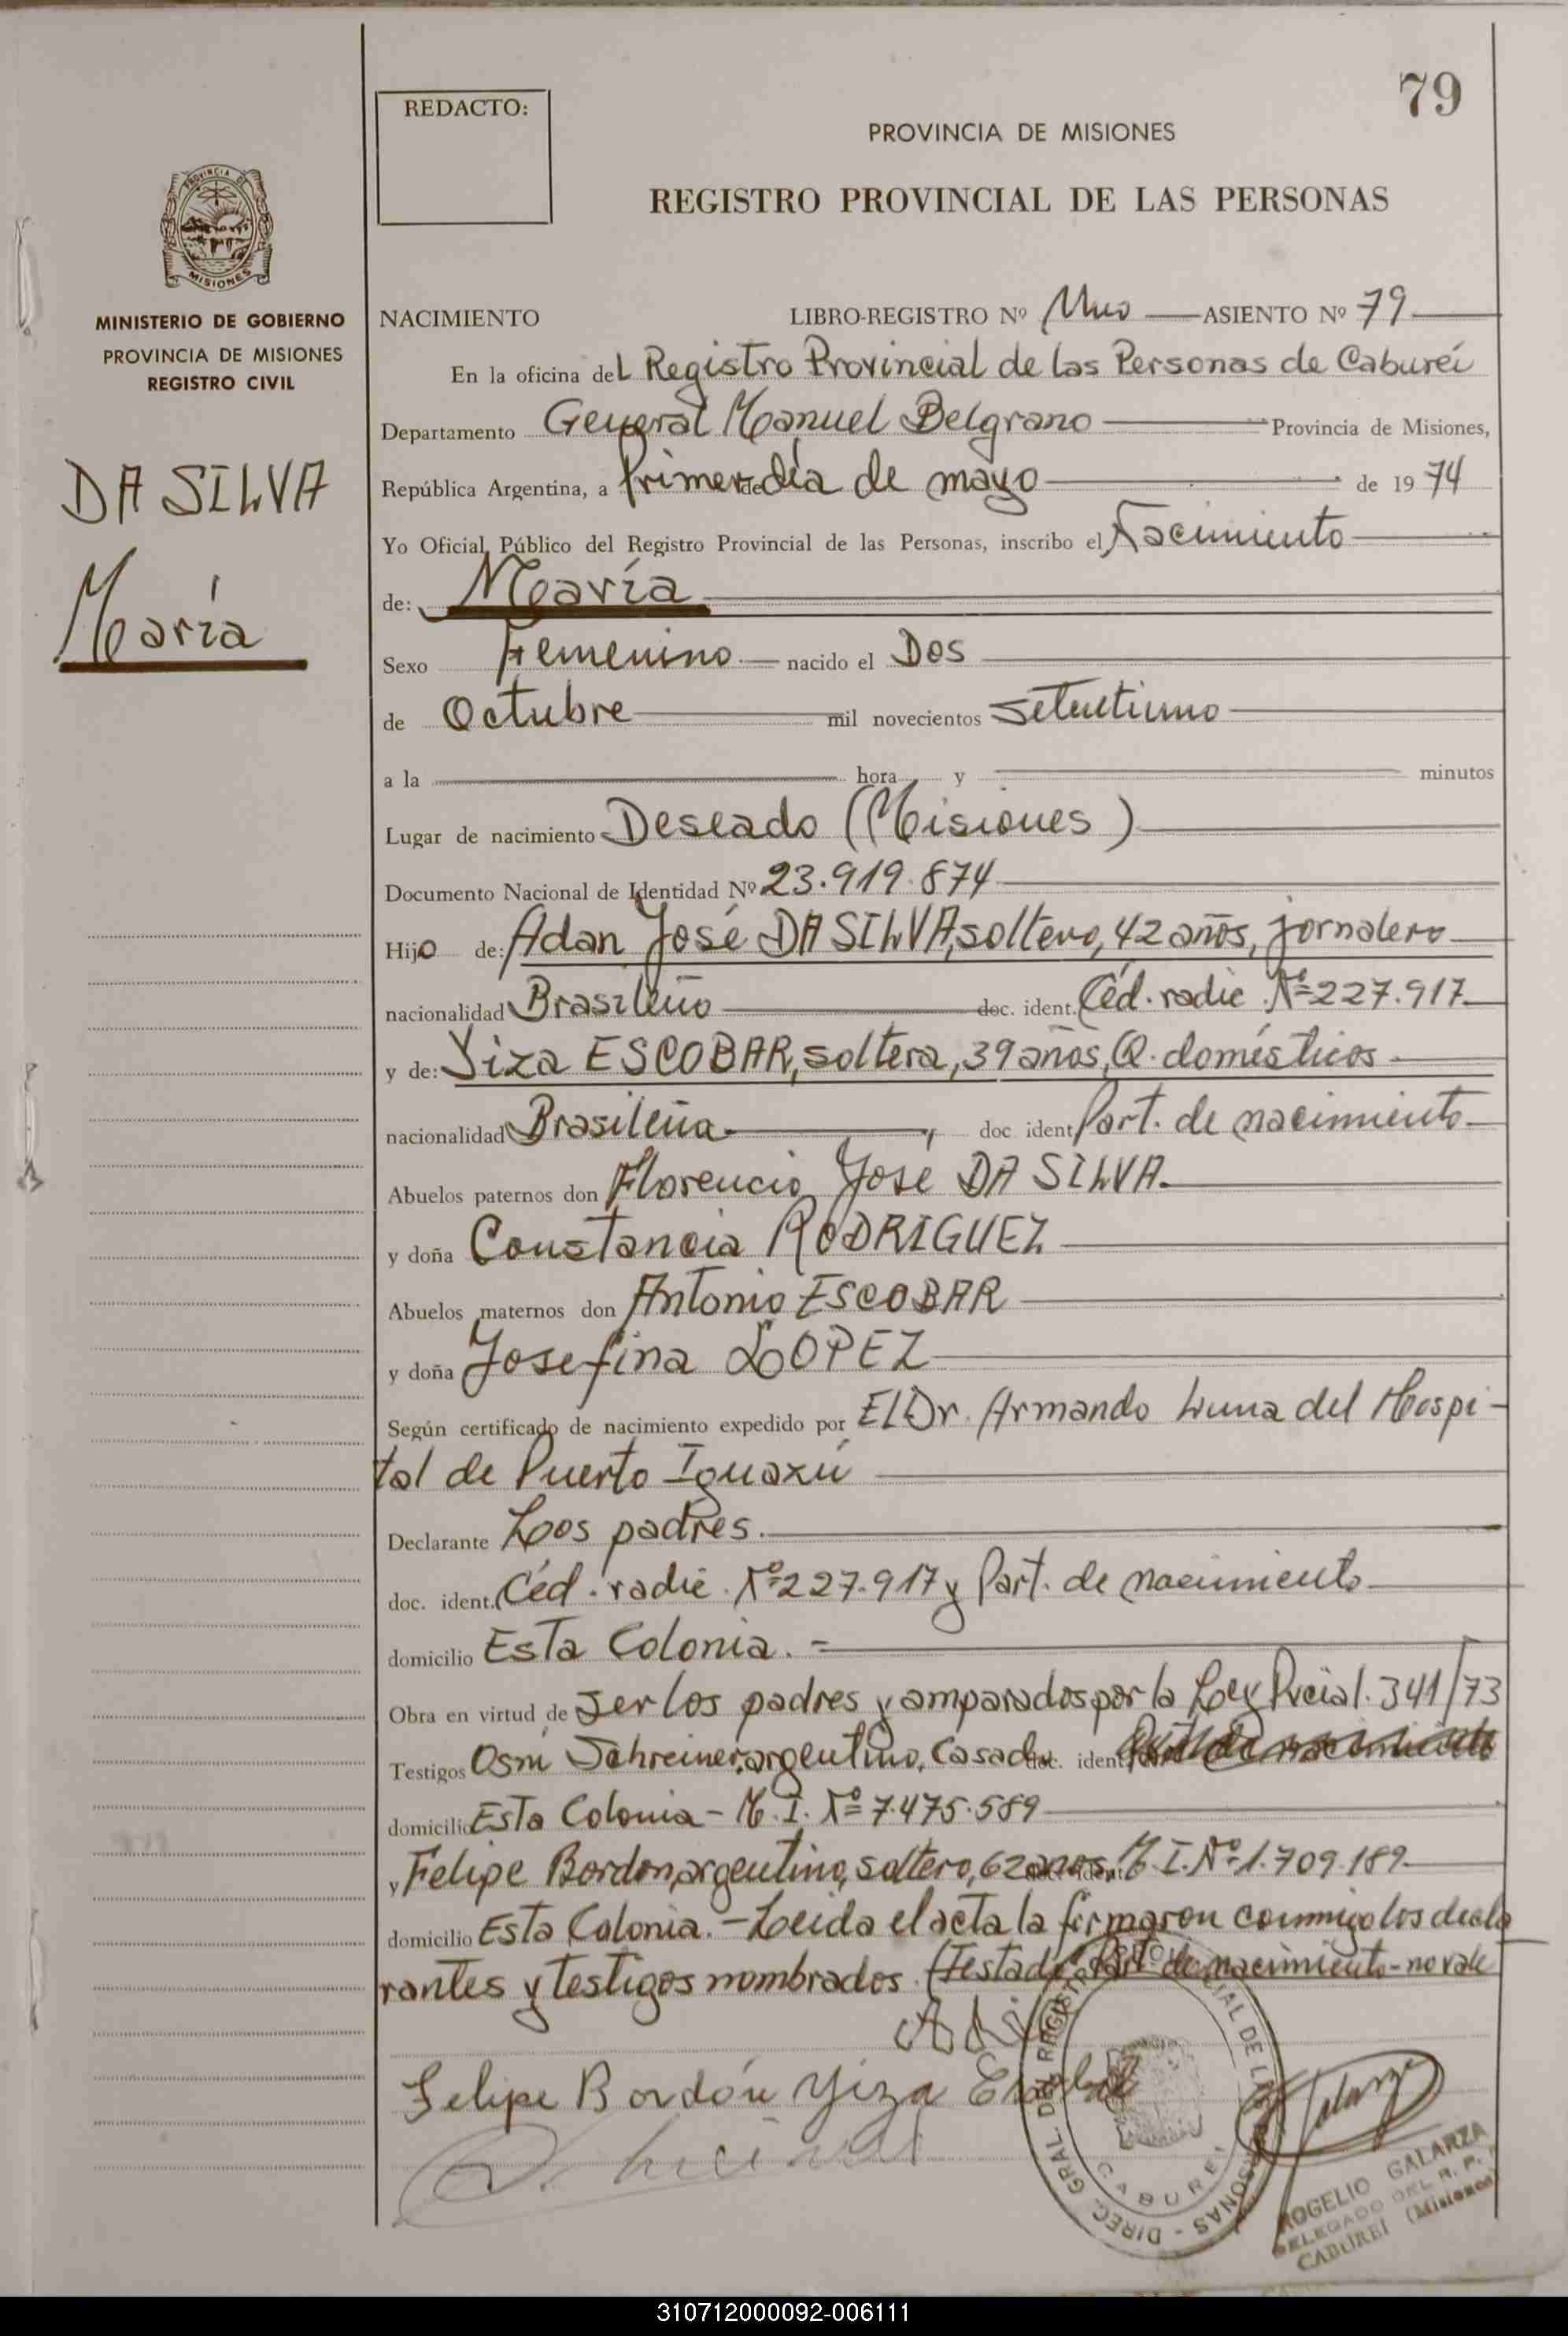 79
REDACTO:
PROVINCIA DE MISIONES
REGISTRO PROVINCIAL DE LAS PERSONAS
PROVINCIA DE
MISIONES
MINISTERIO DE GOBIERNO
PROVINCIA DE MISIONES
REGISTRO CIVIL
DA SILVA
María
NACIMIENTO LIBRO-REGISTRO Nº Uno ASIENTO Nº 79
En la oficina del Registro Provincial de las Personas de Cabureí
Departamento General Manuel Belgrano Provincia de Misiones,
República Argentina, a Primer día de mayo de 1974
Yo Oficial Público del Registro Provincial de las Personas, inscribo el Nacimiento
de: María
Sexo Femenino nacido el Dos
de Octubre mil novecientos setentiuno
a la hora y minutos
Lugar de nacimiento Deseado (Misiones)
Documento Nacional de Identidad Nº 23.919.874
Hijo de: Adan José DA SILVA, soltero, 42 años, jornalero
nacionalidad Brasileño doc. ident. Céd. radic. Nº 227.917
y de: Yiza ESCOBAR, soltera, 39 años, Q. domésticos
nacionalidad Brasileña, doc ident Part. de nacimiento
Abuelos paternos don Florencio José DA SILVA.
y doña Constancia RODRIGUEZ
Abuelos maternos don Antonio ESCOBAR
y doña Josefina LOPEZ
Según certificado de nacimiento expedido por El Dr. Armando Luna del Hospi-
tal de Puerto Iguazú
Declarante Los padres.
doc. ident. Céd. radic. Nº 227.917 y Part. de nacimiento
domicilio Esta Colonia. =
Obra en virtud de ser los padres y amparados por la Ley Pvcial. 341/73
Testigos Osni Schreiner, argentino, Casado doc. ident. Part. de nacimiento
domicilio Esta Colonia - M. I. Nº 7.475.589
y Felipe Bordon, argentino, soltero, 62 años, M. I. Nº 1.709.189
domicilio Esta Colonia. - Leida el acta la firmaron conmigo los decla
rantes y testigos nombrados. (Testado: Part. de nacimiento - no vale
Felipe Bordón Yiza Escobar
DIREC. GRAL. DEL REGISTRO PROVINCIAL DE LAS PERSONAS
CABUREI
ROGELIO GALARZA
DELEGADO DEL R. P. P.
CABUREI (Misiones)
310712000092-006111